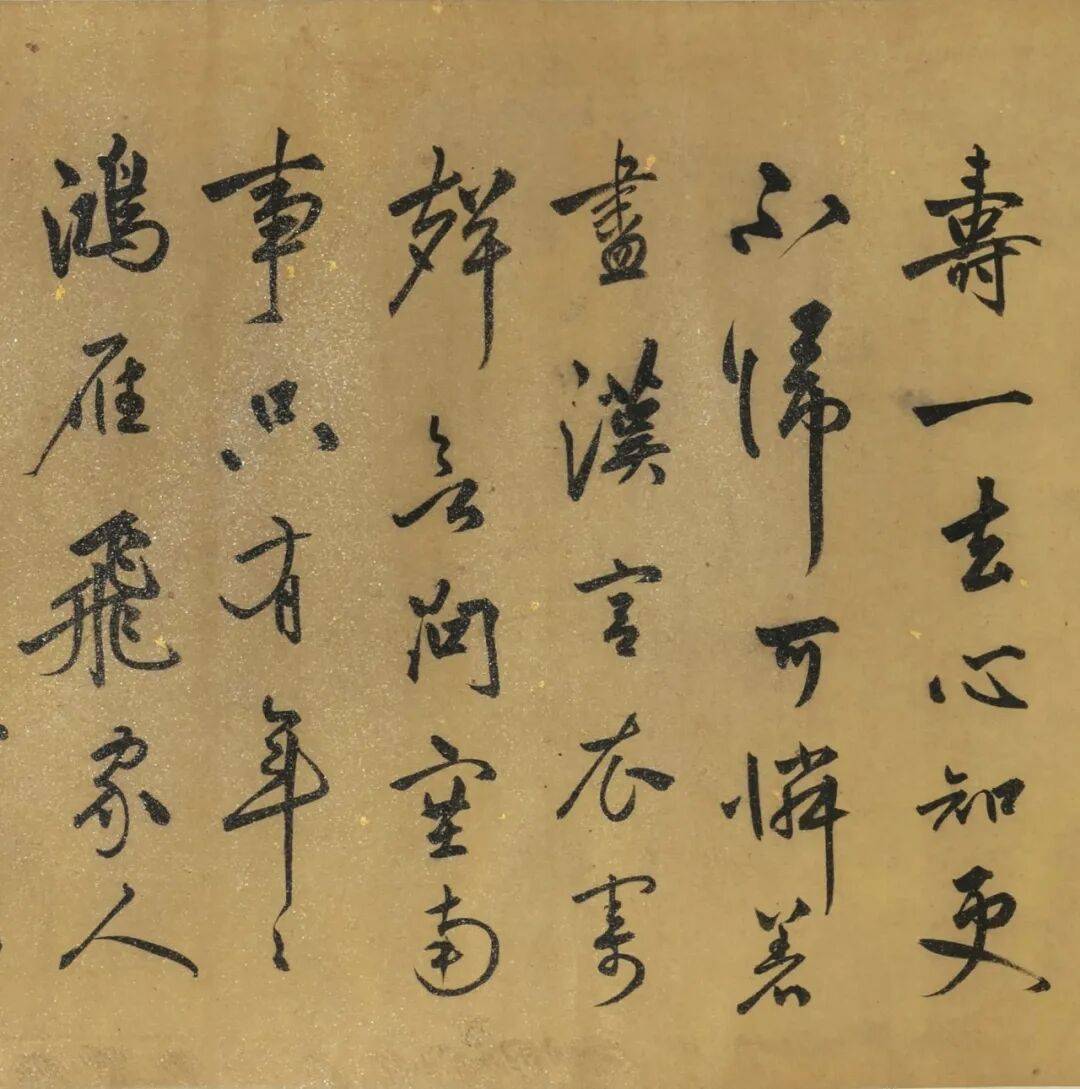 壽一去心知更
不歸可憐着
盡漢宮衣寄
聲欲問塞南
事只有年〻
鴻雁飛家人